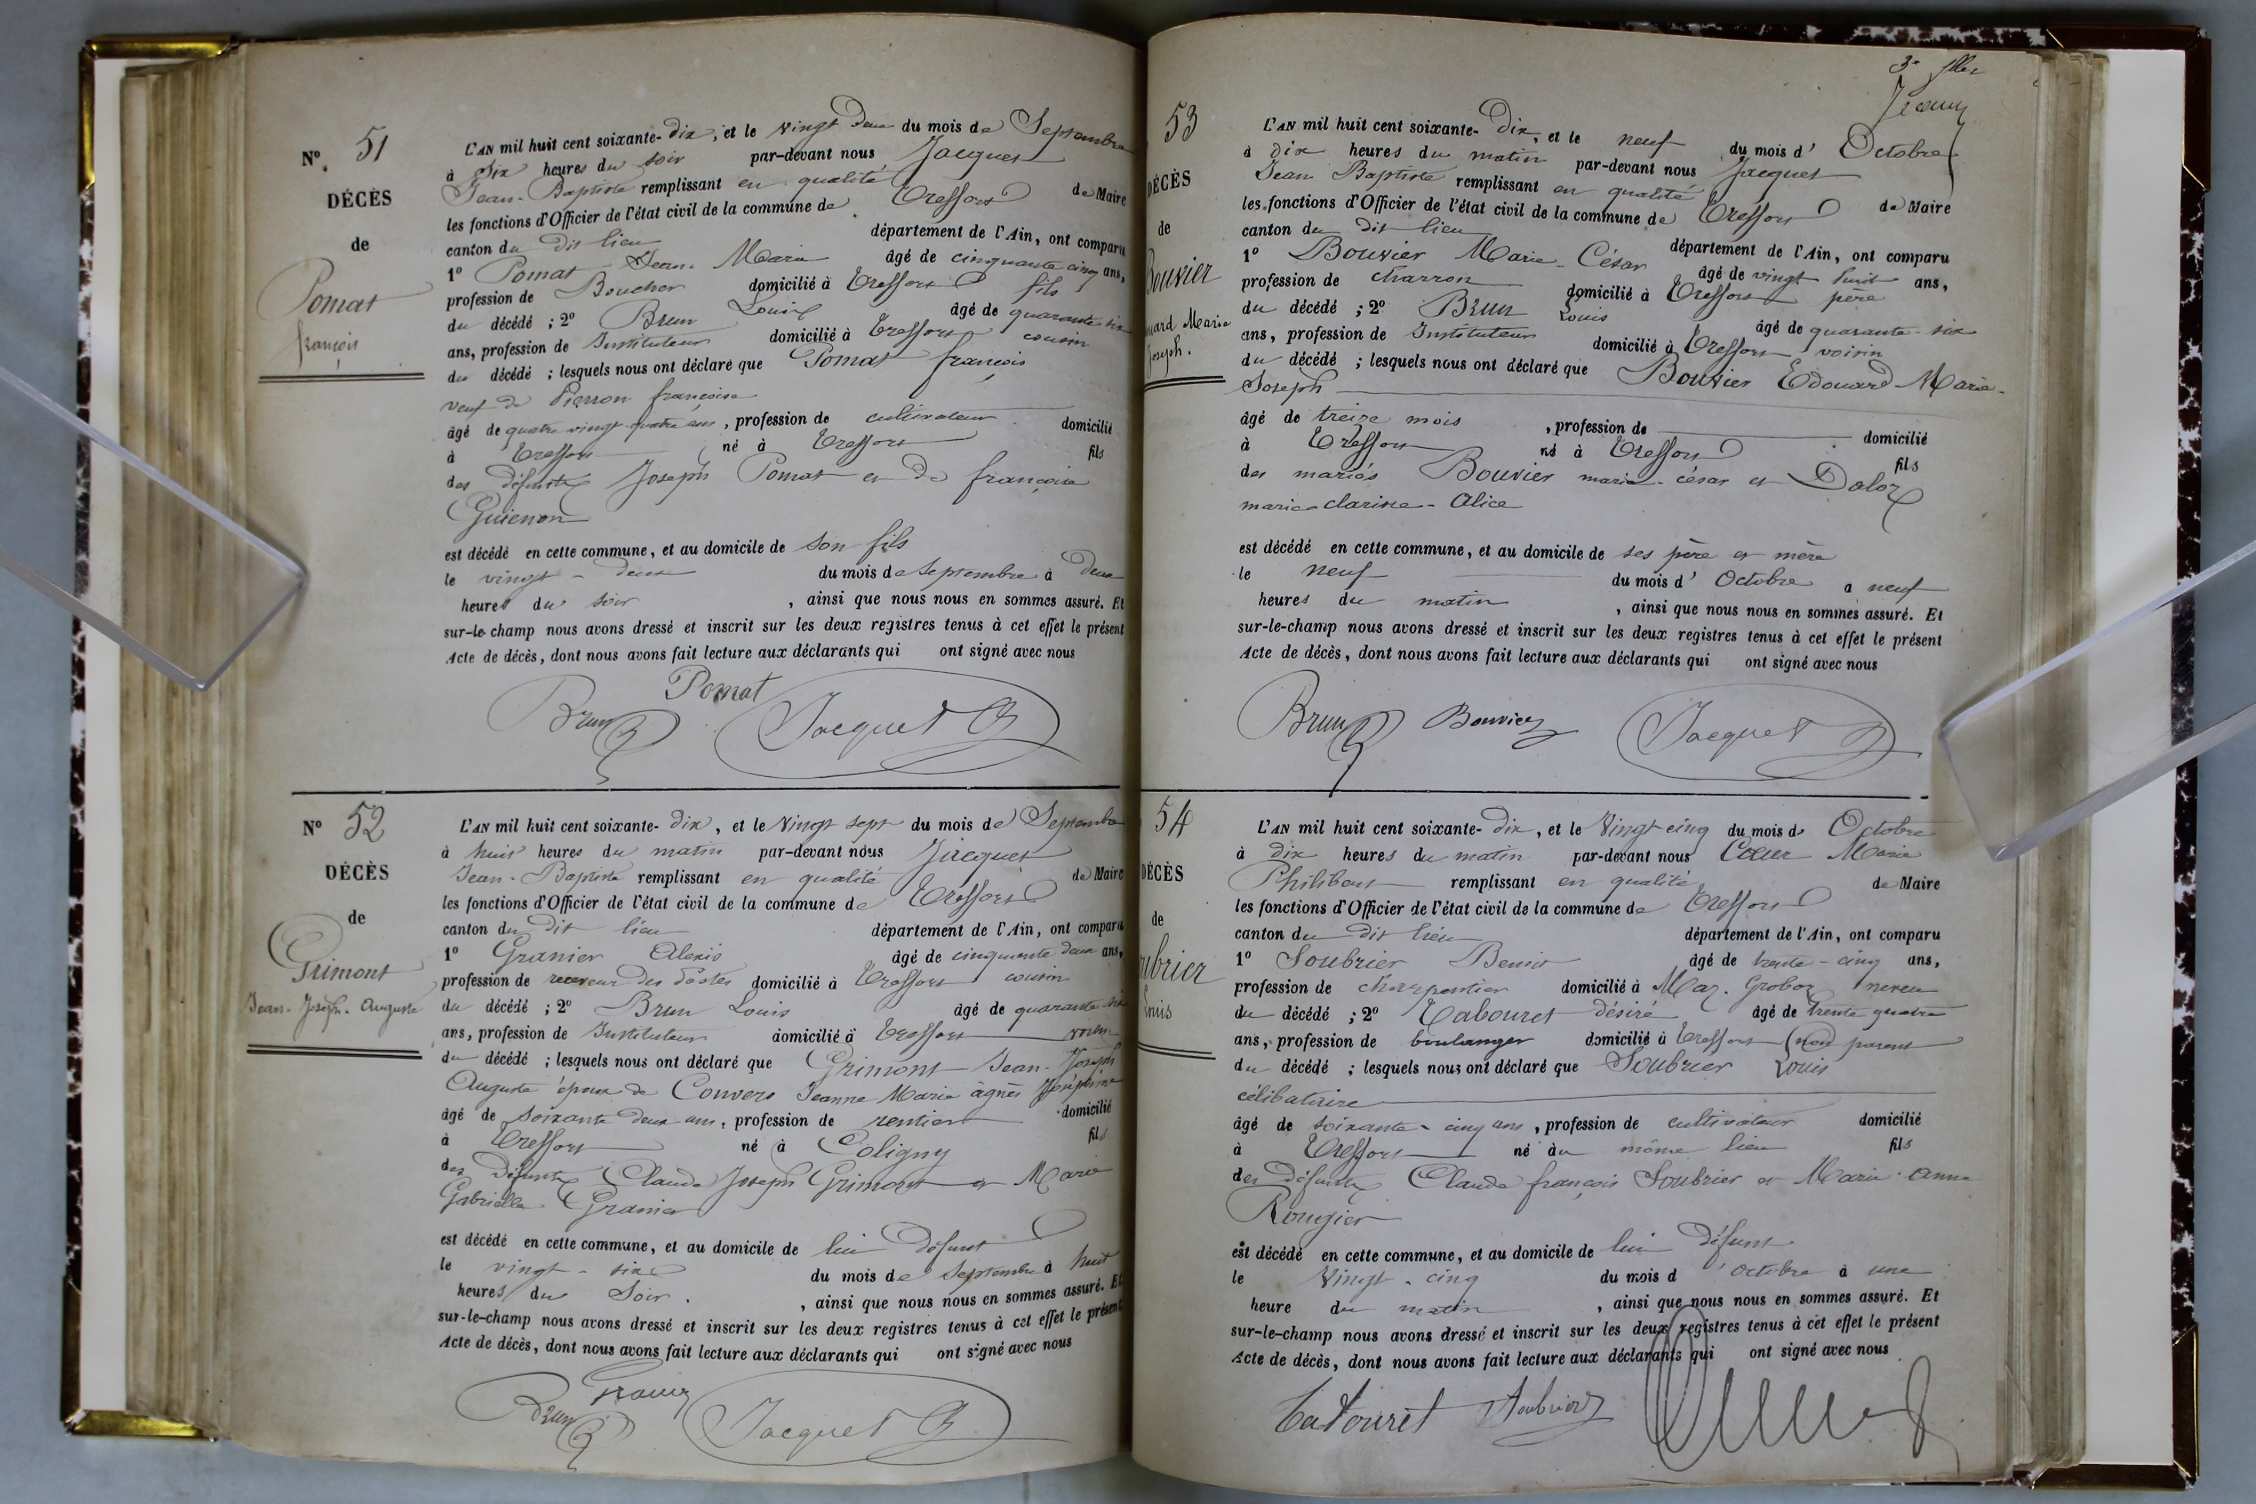 Nº 51
DÉCÈS
de
Pomat
françois
L'AN mil huit cent soixante-dix, et le vingt deux du mois de Septembre
à Six heures du soir par-devant nous Jacquet
Jean-Baptiste remplissant en qualité de Maire
les fonctions d'Officier de l'état civil de la commune de Treffort
canton du dit lieu département de l'Ain, ont comparu
1º Pomat Jean-Marie âgé de cinquante cinq ans,
profession de Boucher domicilié à Treffort fils
du décédé ; 2º Brun Louis âgé de quarante six
ans, profession de Instituteur domicilié à Treffort cousin
du décédé ; lesquels nous ont déclaré que Pomat françois
veuf de Pierron françoise
âgé de quatre vingt quatre ans, profession de cultivateur domicilié
à Treffort né à Treffort fils
des défunts Joseph Pomat et de françoise
Guienon
est décédé en cette commune, et au domicile de son fils
le vingt-deux du mois de Septembre à Deux
heures du soir, ainsi que nous nous en sommes assuré. Et
sur-le-champ nous avons dressé et inscrit sur les deux registres tenus à cet effet le présent
Acte de décès, dont nous avons fait lecture aux déclarants qui ont signé avec nous
Pomat
Brun Jacquet
Nº 52
DÉCÈS
de
Grimont
Jean-Joseph-Auguste
L'AN mil huit cent soixante-dix, et le Vingt sept du mois de Septembre
à huit heures du matin par-devant nous Jacquet
Jean-Baptiste remplissant en qualité de Maire
les fonctions d'Officier de l'état civil de la commune de Treffort
canton du dit lieu département de l'Ain, ont comparu
1º Granier Alexis âgé de cinquante deux ans,
profession de receveur des Postes domicilié à Treffort cousin
du décédé ; 2º Brun Louis âgé de quarante six
ans, profession de Instituteur domicilié à Treffort voisin
du décédé ; lesquels nous ont déclaré que Grimont Jean-Joseph
Auguste époux de Convers Jeanne Marie agnès Joséphine
âgé de soixante deux ans, profession de rentier domicilié
à Treffort né à Coligny fils
des Défunts Claude Joseph Grimont et Marie
Gabrielle Granier
est décédé en cette commune, et au domicile de lui défunt
le vingt-six du mois de Septembre à huit
heures du Soir, ainsi que nous nous en sommes assuré. Et
sur-le-champ nous avons dressé et inscrit sur les deux registres tenus à cet effet le présent
Acte de décès, dont nous avons fait lecture aux déclarants qui ont signé avec nous
Granier
Brun Jacquet
53
DÉCÈS
de
Bouvier
Marie
Joseph.
L'AN mil huit cent soixante-Dix, et le neuf du mois d' Octobre
à dix heures du matin par-devant nous Jacquet
Jean Baptiste remplissant en qualité de Maire
les fonctions d'Officier de l'état civil de la commune de Treffort
canton du dit lieu département de l'Ain, ont comparu
1º Bouvier Marie-César âgé de vingt huit ans,
profession de charron domicilié à Treffort père
du décédé ; 2º Brun Louis âgé de quarante-six
ans, profession de Instituteur domicilié à Treffort voisin
du décédé ; lesquels nous ont déclaré que Bouvier Edouard-Marie-
Joseph
âgé de treize mois, profession de domicilié
à Treffort né à Treffort fils
des mariés Bouvier marie-césar et Daloz
marie-clarisse-Alice
est décédé en cette commune, et au domicile de ses père et mère
le neuf du mois d' Octobre à neuf
heures du matin, ainsi que nous nous en sommes assuré. Et
sur-le-champ nous avons dressé et inscrit sur les deux registres tenus à cet effet le présent
Acte de décès, dont nous avons fait lecture aux déclarants qui ont signé avec nous
Brun Bouvier Jacquet
54
DÉCÈS
de
ubrier
Louis
L'AN mil huit cent soixante-dix, et le Vingt cinq du mois d' Octobre
à dix heures du matin par-devant nous Marie
Philibert remplissant en qualité de Maire
les fonctions d'Officier de l'état civil de la commune de Treffort
canton du dit lieu département de l'Ain, ont comparu
1º Soubrier Benoit âgé de trente-cinq ans,
profession de charpentier domicilié à Maz. Groboz neveu
du décédé ; 2º Tabouret désiré âgé de trente quatre
ans, profession de boulanger domicilié à Treffort (non parent
du décédé ; lesquels nous ont déclaré que Soubrier Louis
célibataire
âgé de soixante-cinq ans, profession de cultivateur domicilié
à Treffort né au même lieu fils
des défunts Claude françois Soubrier et Marie-Anne
Rougier
est décédé en cette commune, et au domicile de lui défunt
le Vingt-cinq du mois d' Octobre à une
heure du matin, ainsi que nous nous en sommes assuré. Et
sur-le-champ nous avons dressé et inscrit sur les deux registres tenus à cet effet le présent
Acte de décès, dont nous avons fait lecture aux déclarants qui ont signé avec nous
Tabouret Soubrier